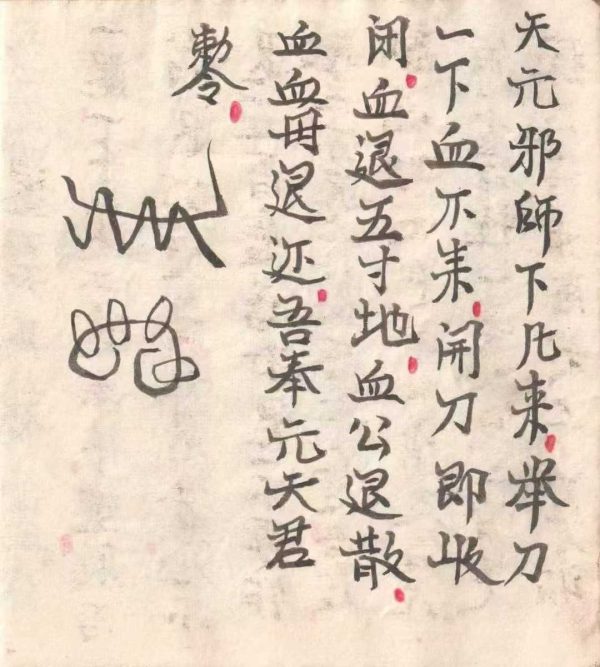 天元邪師下凡来举刀
一下血不朱開刀即收
闭血退五寸地血公退散
血血毌退还吾奉元天君
勅令